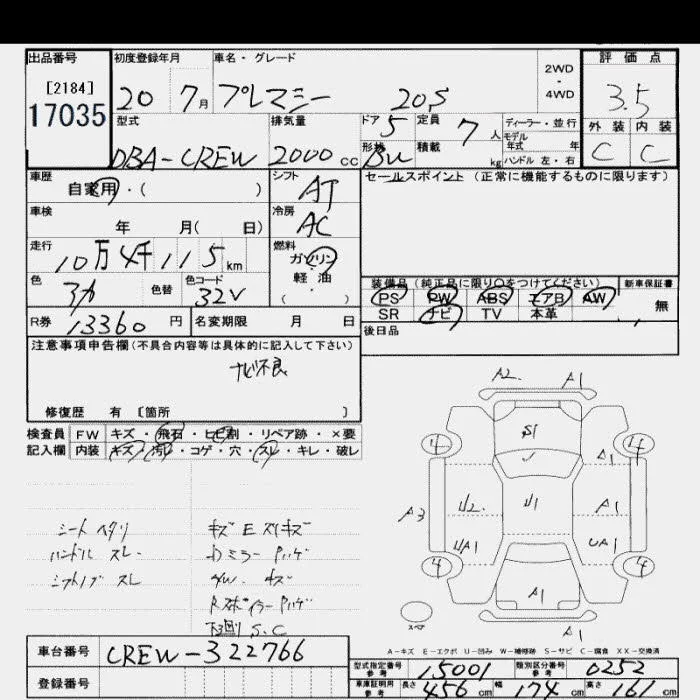 出品番号 初度登録年月 車名・グレード 2WD・4WD 評価点
[2184]
17035
20 7月 プレマシー 20S 3.5
型式 排気量 ドア 5 定員 7人 ディーラー・並行 外装 内装
モデル年式 年
DBA-CREW 2000cc 形状 積載 kg ハンドル 左・右 C C
車歴 自家用・( ) シフト AT セールスポイント (正常に機能するものに限ります)
車検 年 月( 日) 冷房 AC
走行 10万4千115km 燃料 ガソリン・軽油
( ・ )
色 色替 色コード 32V
装備品(純正品に限り○をつけてください) 新車保証書
PS PW ABS エアB AW 無
SR ナビ TV 本革
R券 13360円 名変期限 月 日 後日品
注意事項申告欄(不具合内容等は具体的に記入して下さい)
ナビ不良
修復歴 有 〔箇所 〕
検査員 FW キズ・飛石・ヒビ割・リペア跡・×要
記入欄 内装 キズ・汚レ・コゲ・穴・スレ・キレ・破レ
シート ヘタリ
ハンドル スレ
シフトノブ スレ
A2 A1
S1
4 4
A1
A3 U2 U1 A1
UA1 UA1
4 4
A1
スペア
A1
A-キズ E-エクボ U-凹み W-補修跡 S-サビ C-腐食 XX-交換済
下回り S.C
車台番号 CREW-322766
登録番号
型式指定番号 参考 15001 類別区分番号 参考 0252
車庫証明用 参考 長さ 456cm 幅 174cm 高さ 161cm